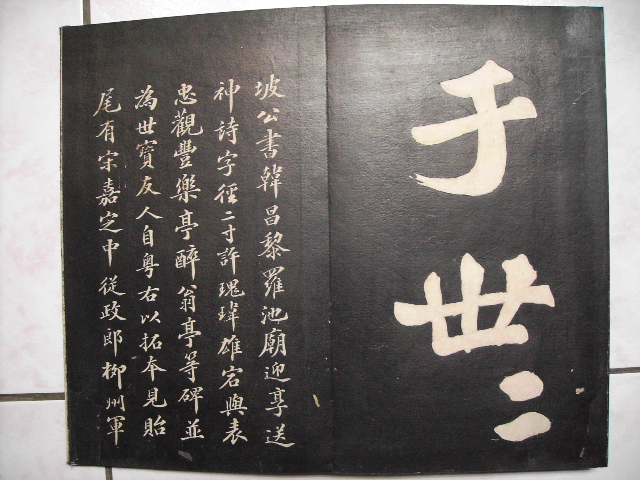 于世〻
坡公書韓昌黎羅池廟迎享送
神詩字徑二寸許瑰瑋雄宕與表
忠觀豐樂亭醉翁亭等碑並
為世寶友人自粵右以拓本見貽
尾有宋嘉定中從政郎柳州軍